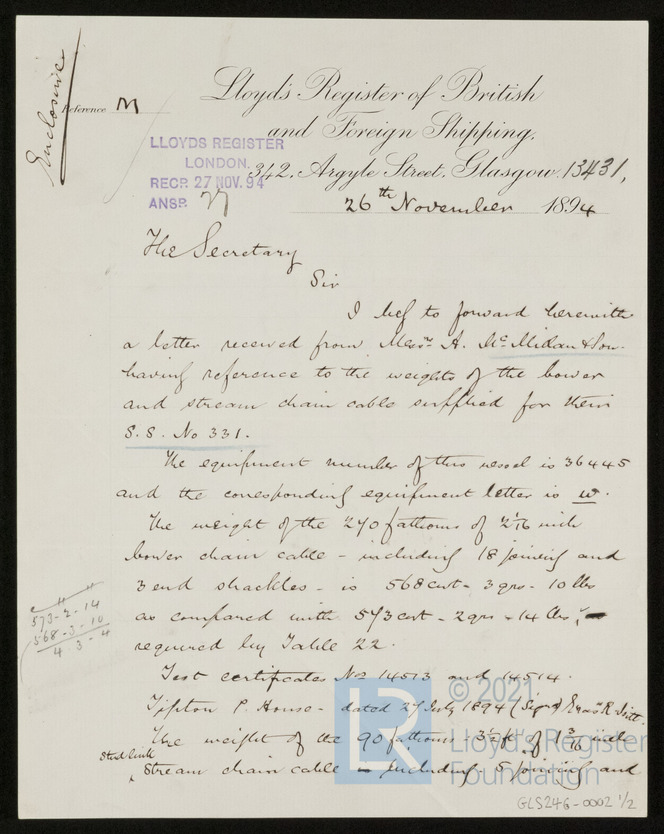 Enclosure
Reference M
Lloyd's Register of British
and Foreign Shipping,
342, Argyle Street, Glasgow, 13431,
LLOYDS REGISTER
LONDON.
RECD. 27 NOV. 94
ANSD. 27
26th November 1894
The Secretary
Sir
I beg to forward herewith
a letter received from Messrs A. McMillan & Son
having reference to the weights of the bower
and stream chain cable supplied for their
S.S. No 331.
The equipment number of this vessel is 36445
and the corresponding equipment letter is w.
The weight of the 270 fathoms of 2 1/16 inch
bower chain cable - including 18 joining and
3 end shackles - is 568 cwt - 3 qrs - 10 lbs
as compared with 573 cwt - 2 qrs - 14 lbs,
required by Table 22.
573-2-14
568-3-10
4 3-4
Test certificates Nos 14513 and 14514.
Tipton P. House - dated 27 July 1894 (Signed)
The weight of the 90 fathoms of inch
Stud link
Stream chain cable - including 5 joining and
© 2021
LR
Lloyd's Register
Foundation
GLS246-0002 1/2